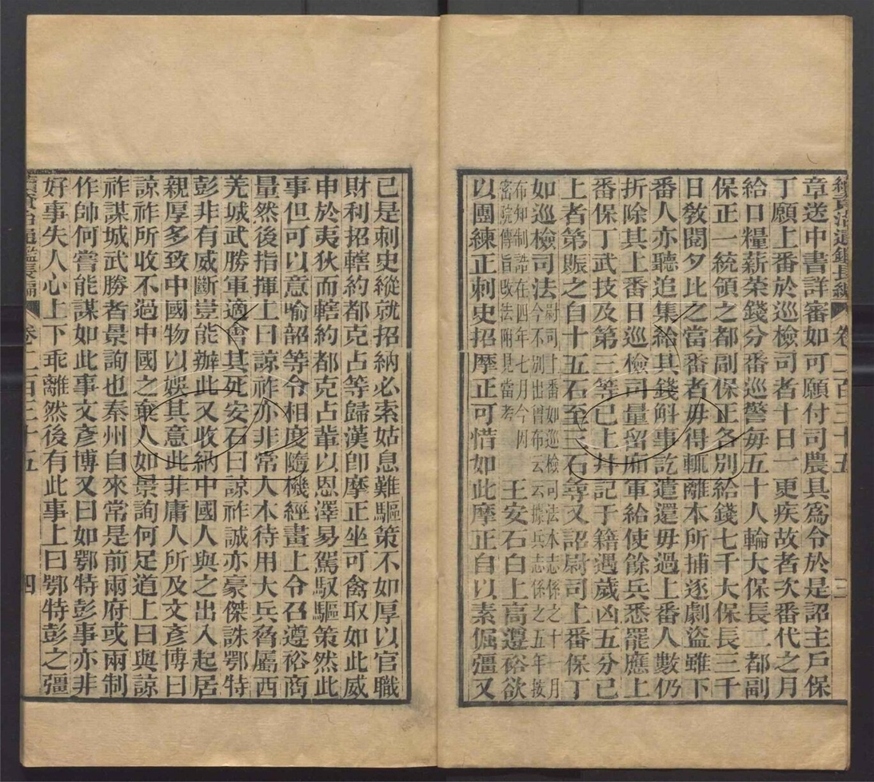 續資治通鑑長編 卷二百三十五 三
章送中書詳審如可願付司農具爲令於是詔主戶保
丁願上番於巡檢司者十日一更疾故者次番代之月
給口糧薪菜錢分番巡警毎五十人輪大保長二都副
保正一統領之都副保正各別給錢七千大保長三千
日敎閱夕比之當番者毋得輒離本所捕逐劇盜雖下
番人亦聽追集給其錢斛事訖遣還毋過上番人數仍
折除其上番日巡檢司量留廂軍給使餘兵悉罷應上
番保丁武技及第三等已上幷記于籍遇歲凶五分已
上者第賑之自十五石至三石等又詔尉司上番保丁
如巡檢司法尉司上番如巡檢司法本志係之十一月
今不別出曾布云云據兵志係之五年按
布知制誥在四年七月今因
密院傳旨收法附見當考王安石白上高遵裕欲
以團練正刺史招摩正可惜如此摩正自以素倔彊又
已是刺史縱就招納必素姑息難驅策不如厚以官職
財利招轄約都克占等歸漢卽摩正坐可禽取如此威
申於夷狄而轄約都克占輩以恩澤易駕馭驅策然此
事但可以意喻韶等令相度隨機經畫上令召遵裕商
量然後指揮上曰諒祚亦非常人本待用大兵脅屬西
羌城武勝軍適會其死安石曰諒祚誠亦豪傑誅鄂特
彭非有威斷豈能辦此又收納中國人與之出入起居
親厚多致中國物以娛其意此非庸人所及文彥博曰
諒祚所收不過中國之棄人如景詢何足道上曰與諒
祚謀城武勝者景詢也秦州自來常是前兩府或兩制
作帥何嘗能謀如此事文彥博又曰如鄂特彭事亦非
好事失人心上下乖離然後有此事上曰鄂特彭之彊
續資治通鑑長編 卷二百三十五 四